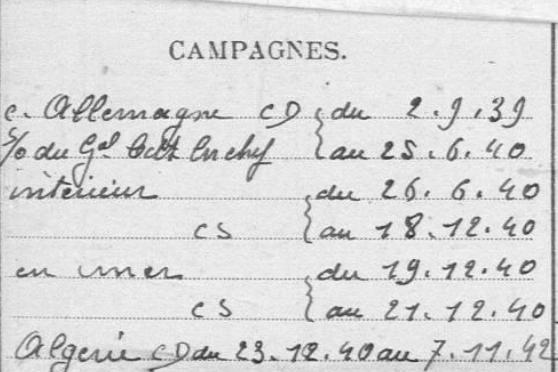 CAMPAGNES.
c. Allemagne CD { du 2.9.39
s/o du Gal Cdt En chef { au 25.6.40
intérieur { du 26.6.40
CS { au 18.12.40
en mer { du 19.12.40
CS { au 21.12.40
Algerie CD du 23.12.40 au 7.11.42